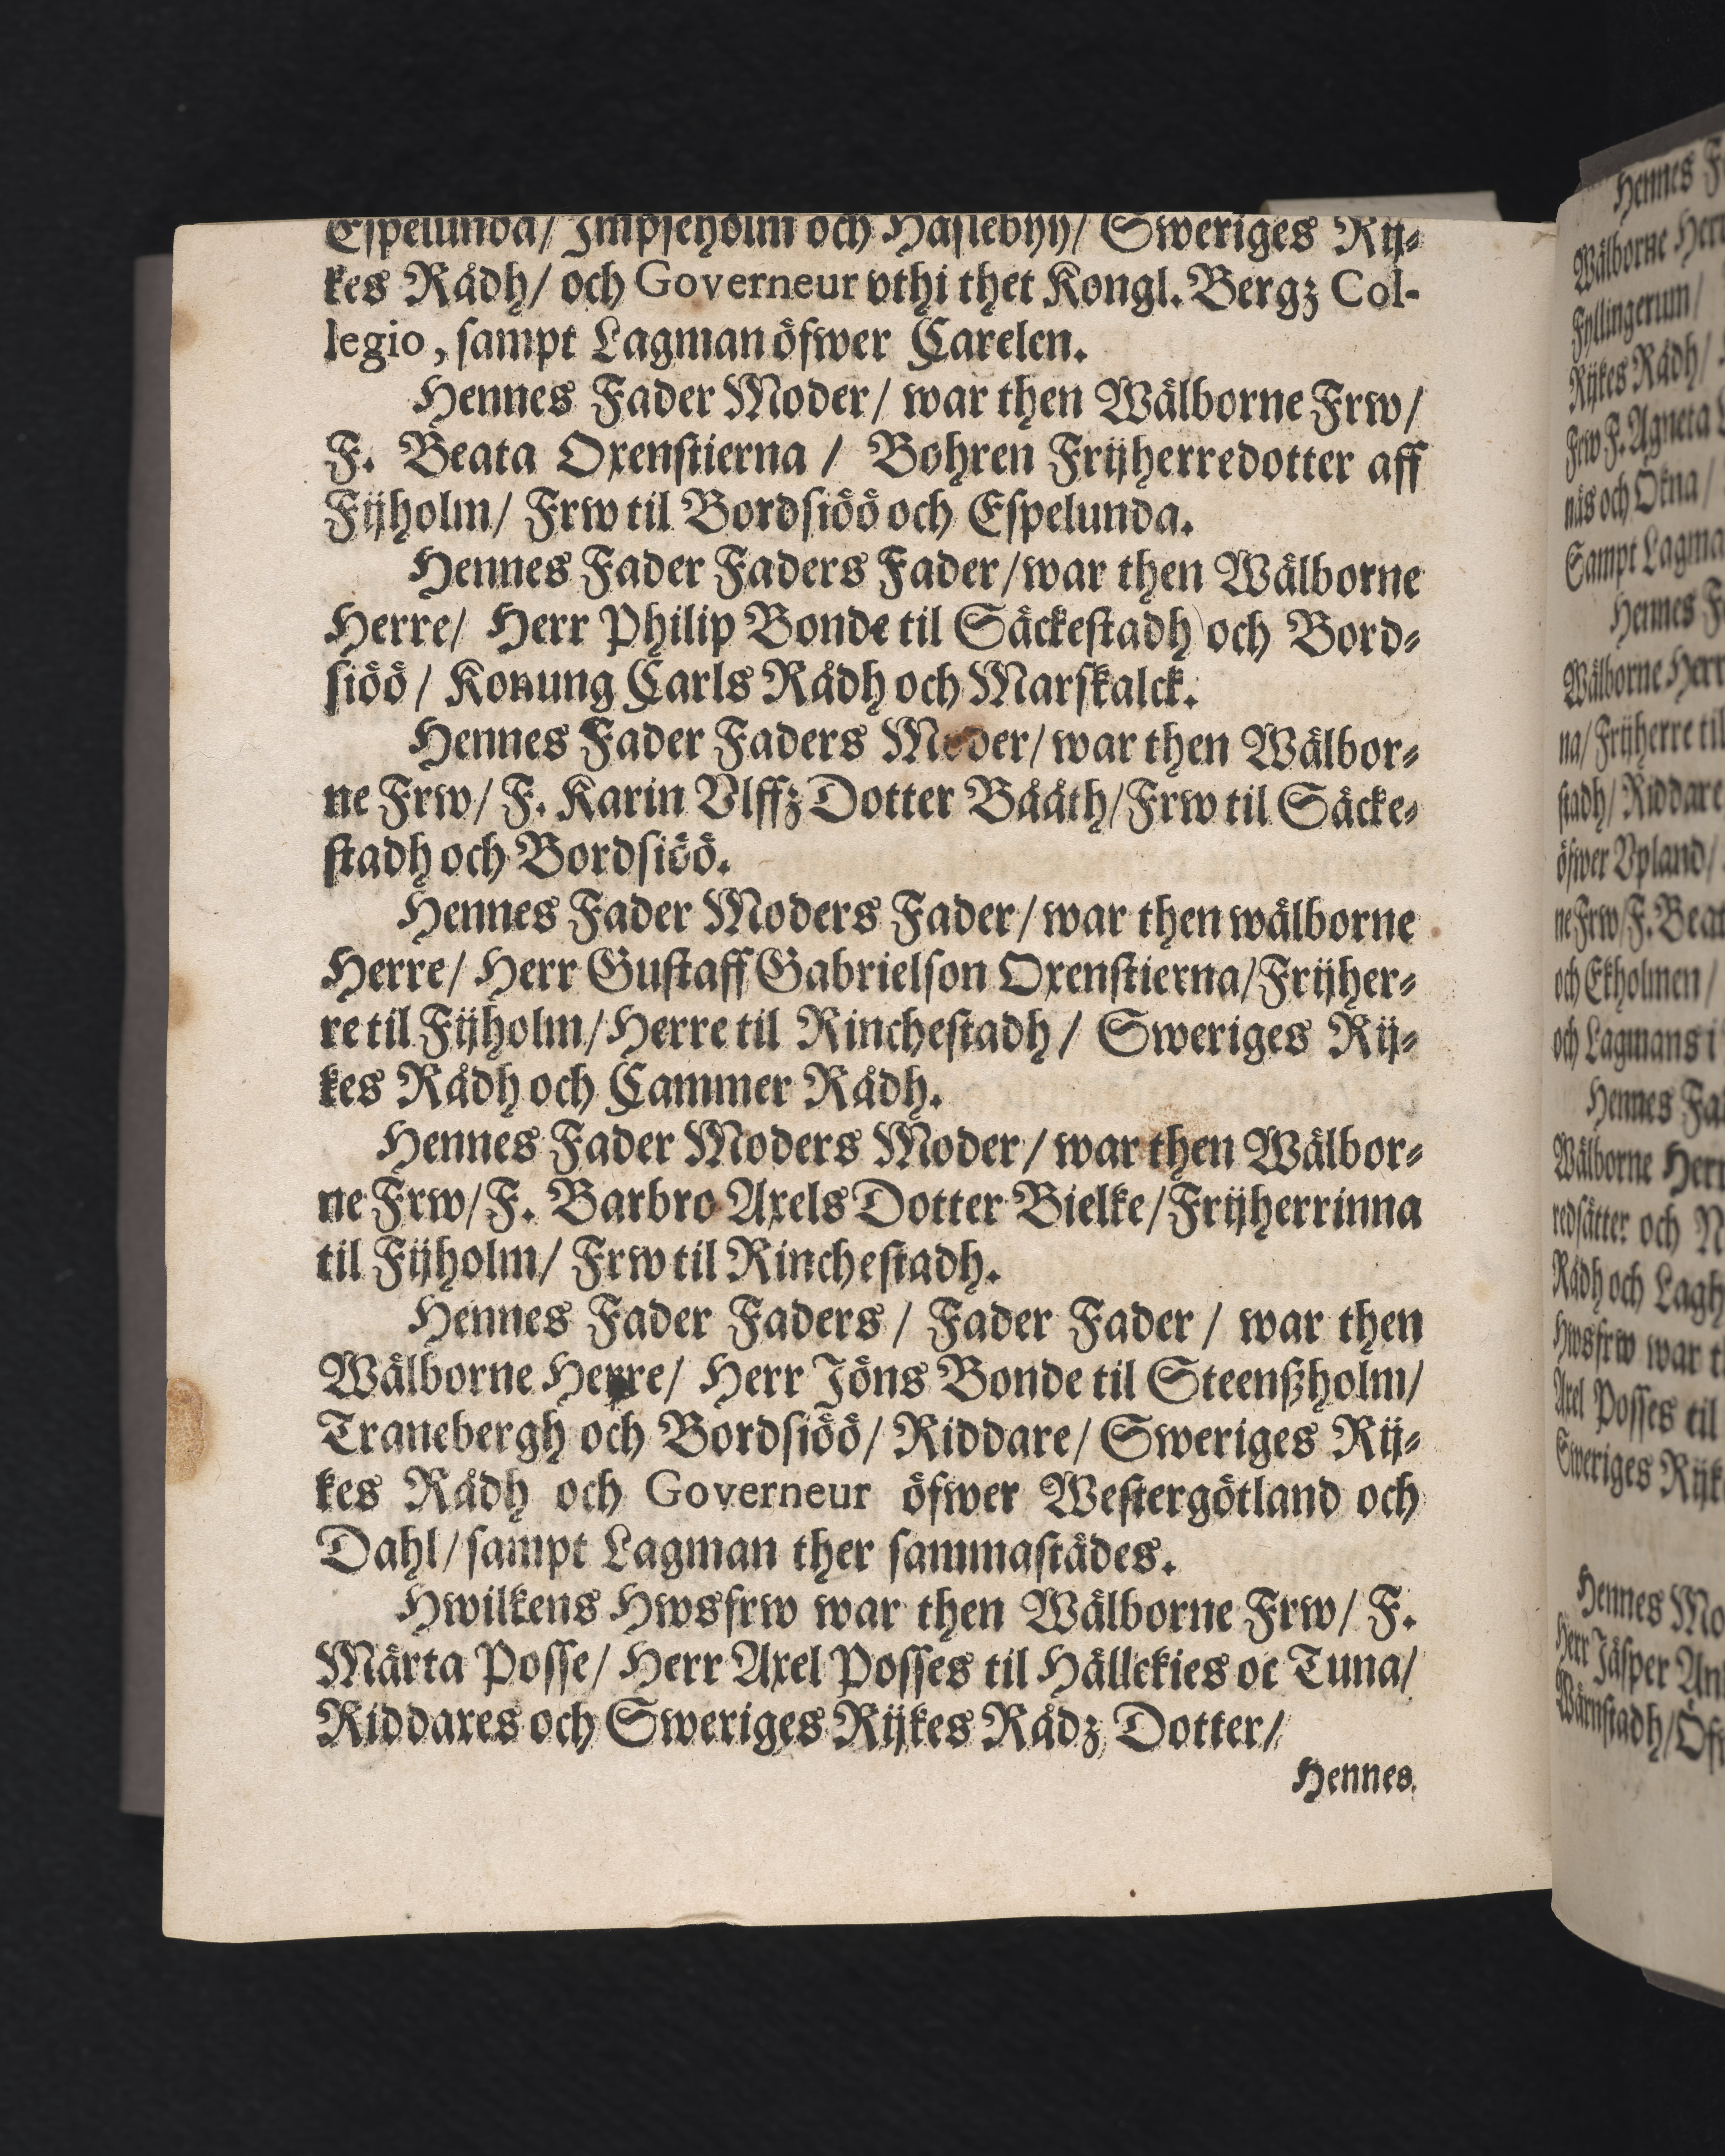 Espelunda/ Impseholm och Häslebyy/ Sweriges Rij-
kes Rådh/ och Governeur vthi thet Kongl. Bergz Col-
legio, sampt Lagman öfwer Carelen.
Hennes Fader Moder/ war then Wälborne Frw/
F. Beata Oxenstierna / Bohren Frijherredotter aff
Fijholm/ Frw til Bordsiöö och Espelunda.
Hennes Fader Faders Fader/ war then Wälborne
Herre/ Herr Philip Bonde til Säckestadh och Bord-
siöö/ Konung Carls Rådh och Marskalck.
Hennes Fader Faders Moder/ war then Wälbor-
ne Frw/ F. Karin Vlffz Dotter Bååth/ Frw til Säcke-
stadh och Bordsiöö.
Hennes Fader Moders Fader/ war then wälborne
Herre/ Herr Gustaff Gabrielson Oxenstierna/ Frijher-
re til Fijholm/ Herre til Rinchestadh/ Sweriges Rij-
kes Rådh och Cammer Rådh.
Hennes Fader Moders Moder/ war then Wälbor-
ne Frw/ F. Barbro Axels Dotter Bielke/ Frijherrinna
til Fijholm/ Frw til Rinchestadh.
Hennes Fader Faders/ Fader Fader/ war then
Wälborne Herre/ Herr Jöns Bonde til Steenßholm/
Tranebergh och Bordsiöö/ Riddare/ Sweriges Rij-
kes Rådh och Governeur öfwer Westergötland och
Dahl/ sampt Lagman ther sammastädes.
Hwilkens Hwsfrw war then Wälborne Frw/ F.
Märta Posse/ Herr Axel Posses til Hällekies oc Tuna/
Riddares och Sweriges Rijkes Rådz Dotter/
Hennes
Hennes
Wälborne Herr
Fyllingerum/
Rijkes Rådh/
Frw F. Agneta
näs och Ökna/
Sampt Lagma
Hennes
Wälborne Herr
na/ Frijherre til
stadh/ Riddare
öfwer Vpland/
ne Frw/ F. Beat
och Ekholmen/
och Lagmans i
Hennes Fa
Wälborne Herr
redsätter och N
Rådh och Lagh
Hwsfrw war th
Axel Posses til
Sweriges Rijk
Hennes Mo
Herr Jäsper An
Wärnstadh/ Öf